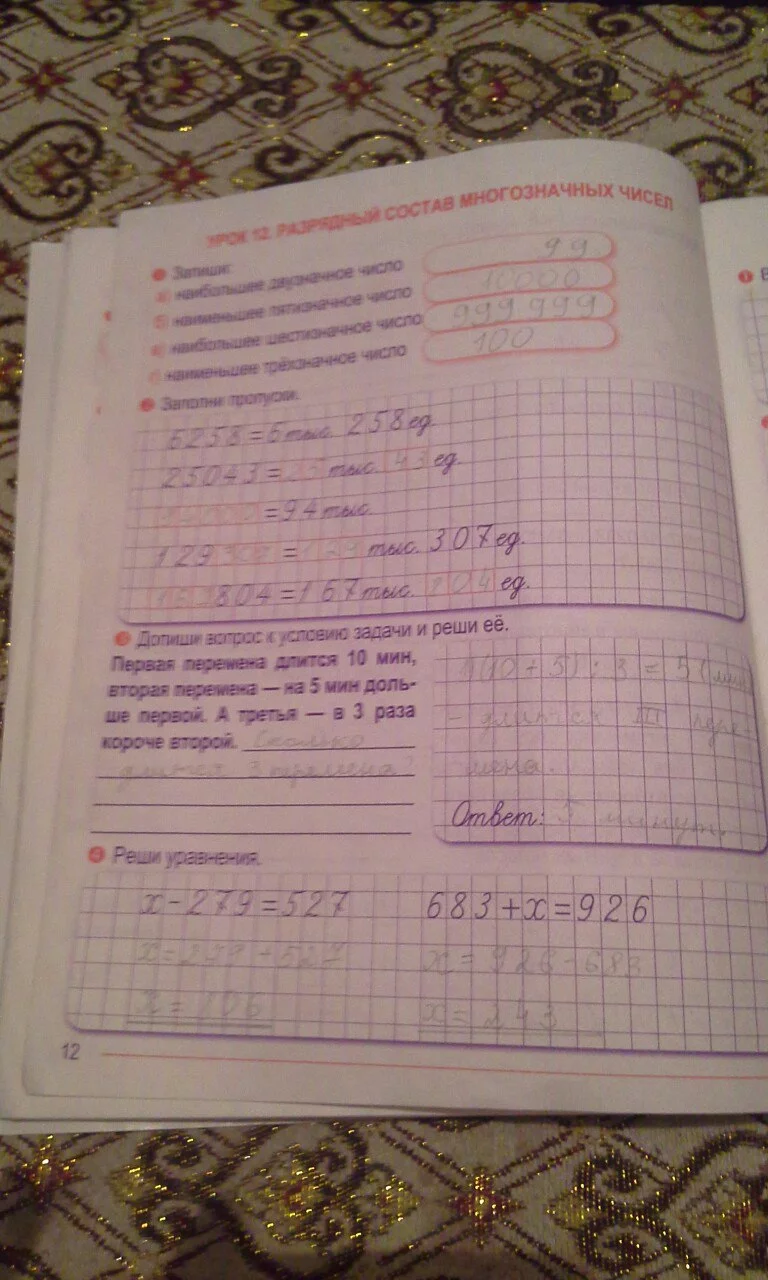 УРОК 12. РАЗРЯДНЫЙ СОСТАВ МНОГОЗНАЧНЫХ ЧИСЕЛ
1 Запиши:
а) наибольшее двузначное число 99
б) наименьшее пятизначное число 10000
в) наибольшее шестизначное число 999 999
г) наименьшее трёхзначное число 100
2 Заполни пропуски.
6258 = 6 тыс. 258 ед.
25043 = 25 тыс. 43 ед.
= 94 тыс.
129 = 129 тыс. 307 ед.
804 = 167 тыс. 804 ед.
3 Допиши вопрос к условию задачи и реши её.
Первая перемена длится 10 мин,
вторая перемена — на 5 мин доль-
ше первой. А третья — в 3 раза
короче второй. Сколько
длится 3 перемена?
(10 + 5) : 3 = 5 (мин
- длится III пере-
мена.
Ответ: 5 минут.
4 Реши уравнения.
x - 279 = 527
x = 279 + 527
x = 806
683 + x = 926
x = 926 - 683
x = 243
12
1 В